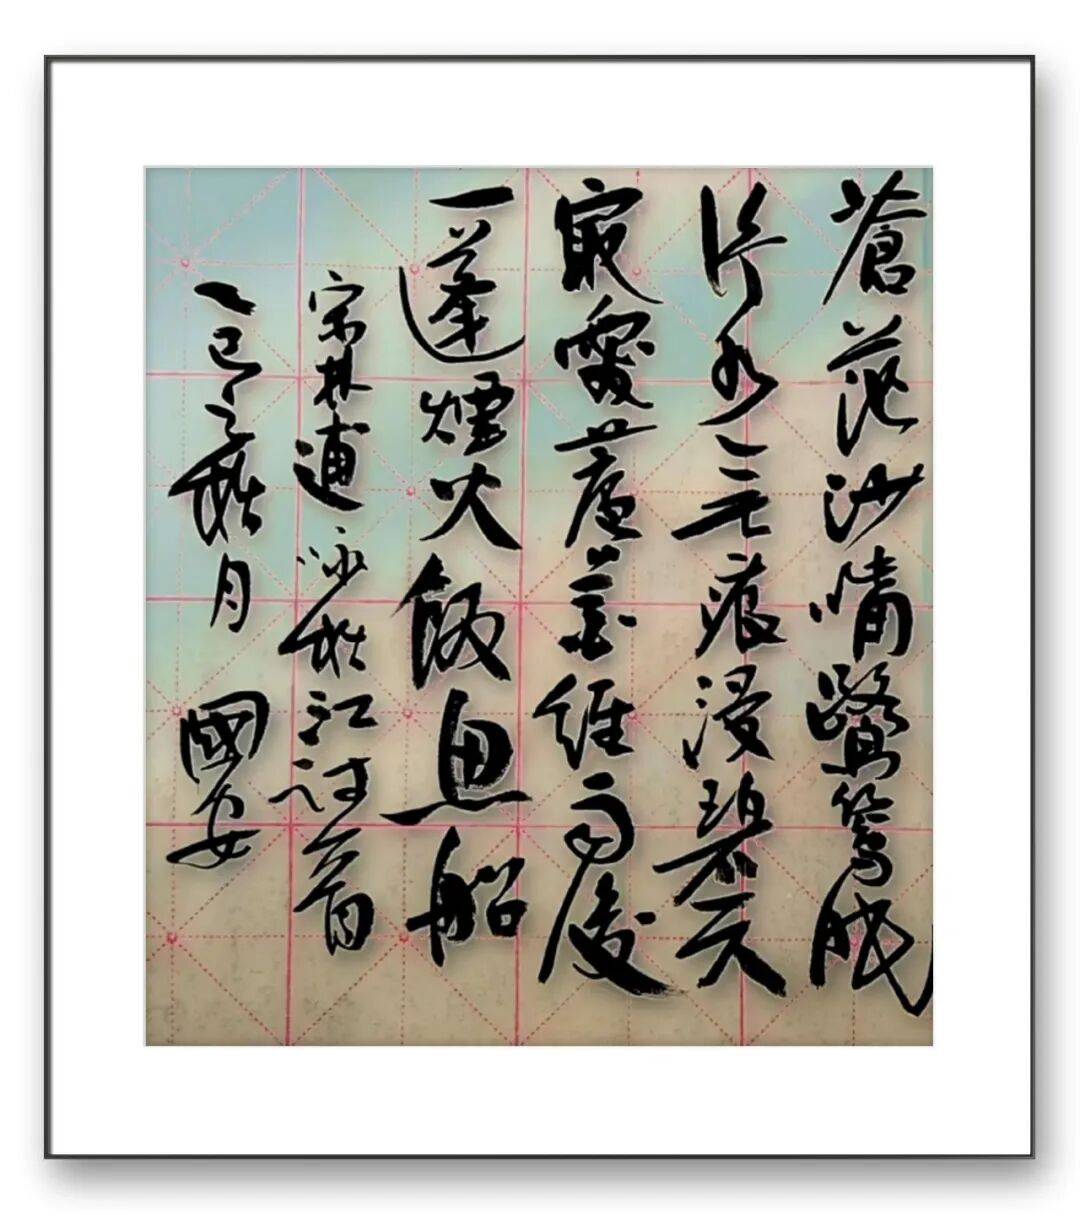 蒼茫沙嘴鷺鷥眠
片水無痕浸碧天
最愛蘆花經雨後
一蓬煙火飯魚船
宋林逋咏秋江詩一首
乙巳之秋月 國安